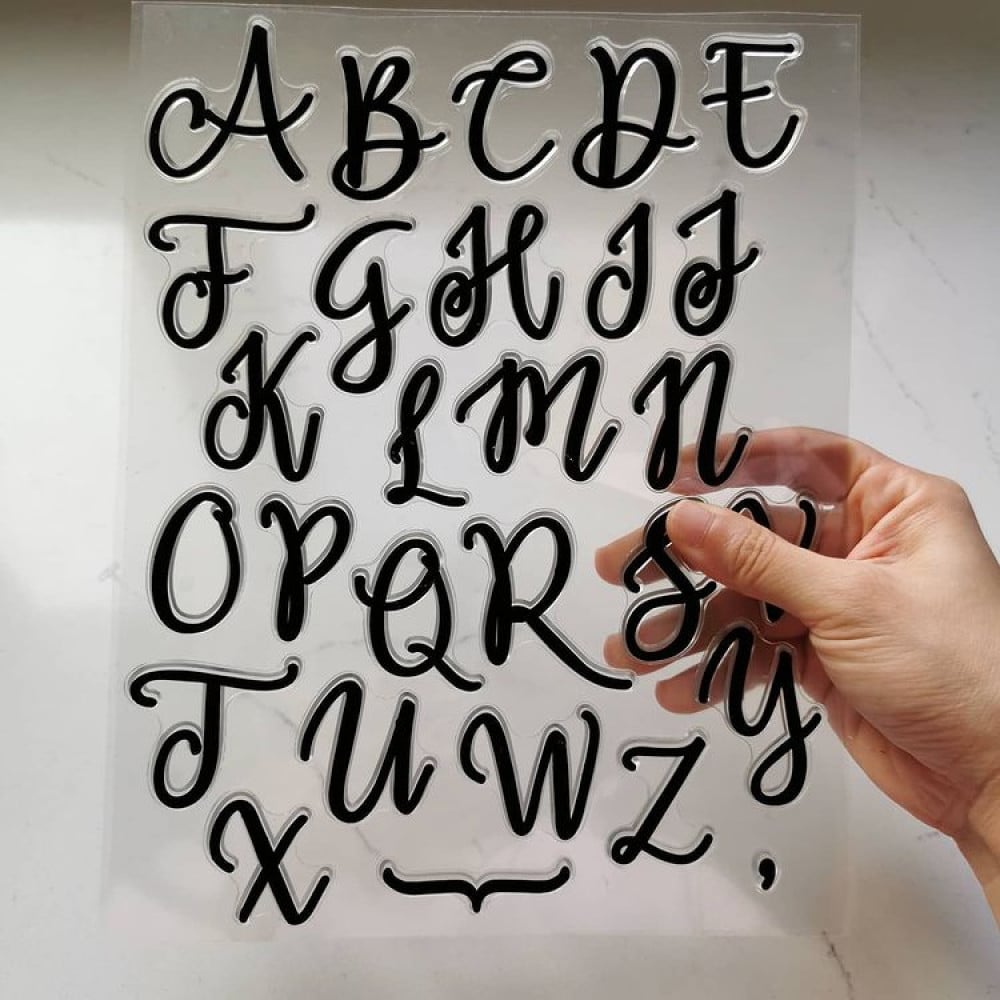 A B C D E
F G H I J
K L M N
O P Q R S V
T U W Z Y
X ,